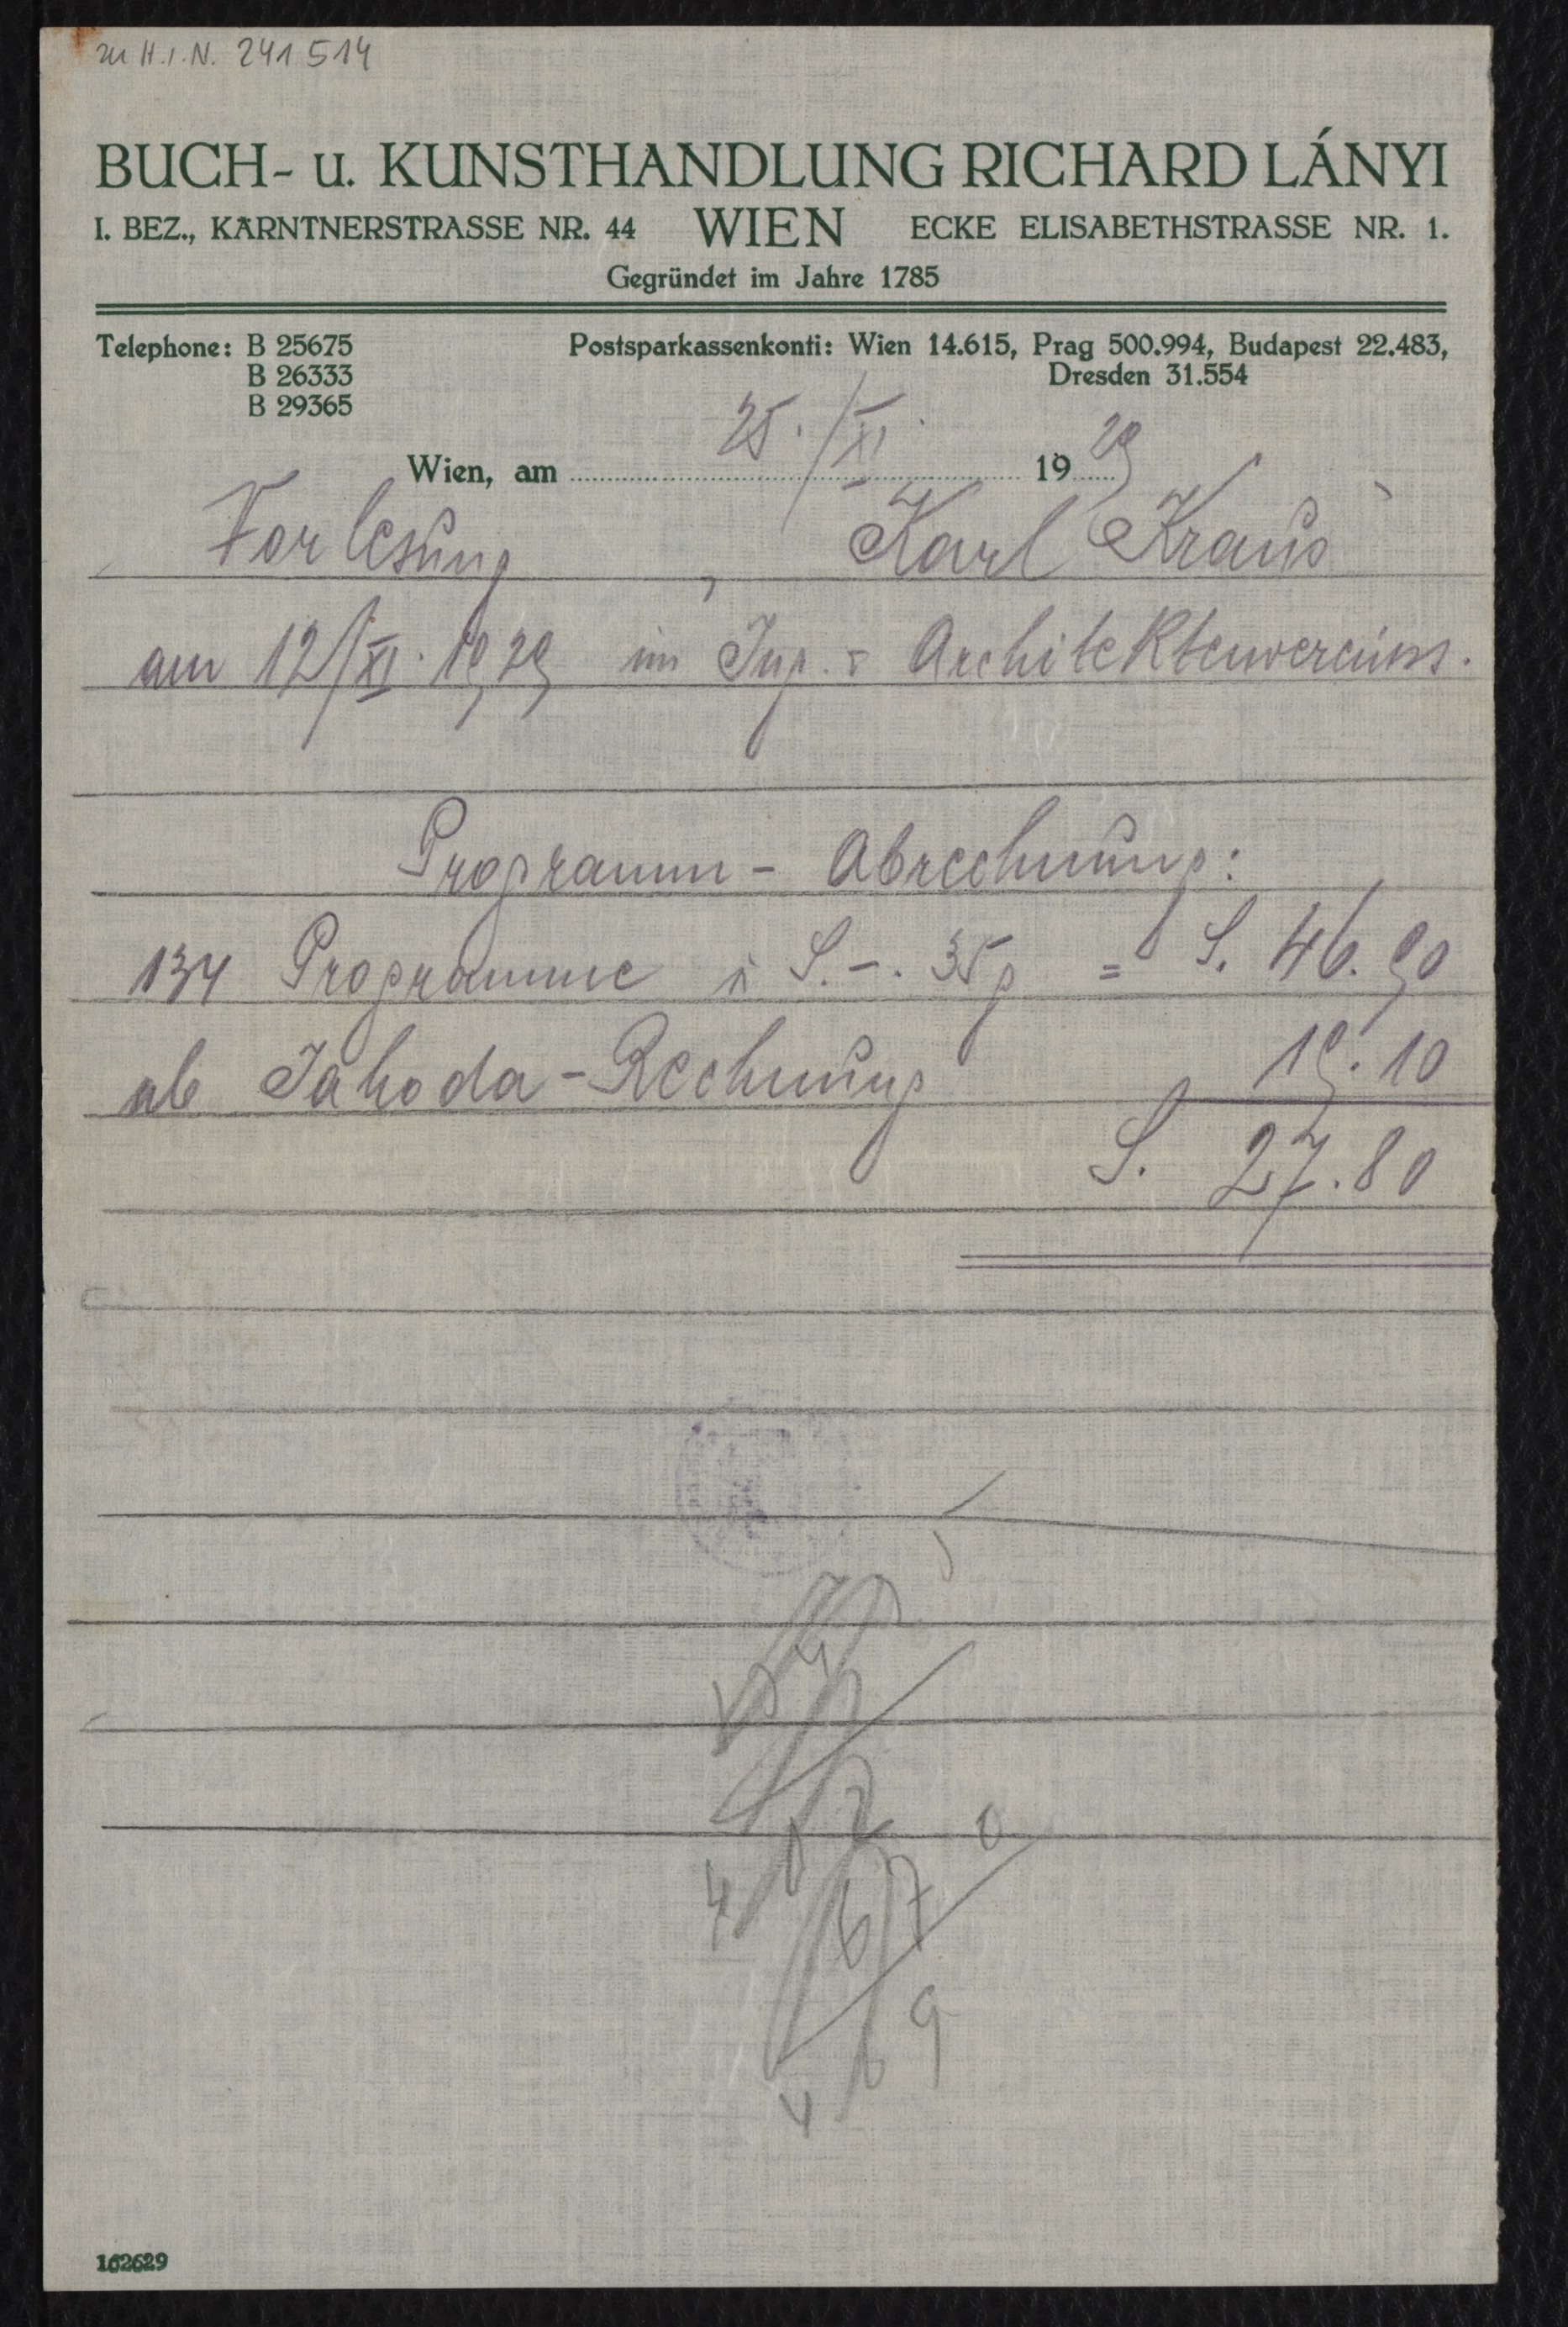 zu H.I.N. 241514
BUCH- u. KUNSTHANDLUNG RICHARD LÁNYI
I. BEZ., KÄRNTNERSTRASSE NR. 44 WIEN ECKE ELISABETHSTRASSE NR. 1.
Gegründet im Jahre 1785
Telephone: B 25675 Postsparkassenkonti: Wien 14.615, Prag 500.994, Budapest 22.483,
B 26333 Dresden 31.554
B 29365
Wien, am 25./XI. 1929
Vorlesung, Karl Kraus
am 12/XI. 1929 im Ing. & Architektenvereins.
Programm - Abrechnung:
134 Programme à S. -. 35 g = S. 46.90
ab Jahoda - Rechnung 19.10
S. 27.80
4 0 2
6 7 0
4 6 9
162629